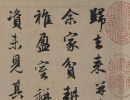 歸去来兮
余家貧耕
稚盈室缾
資未見其